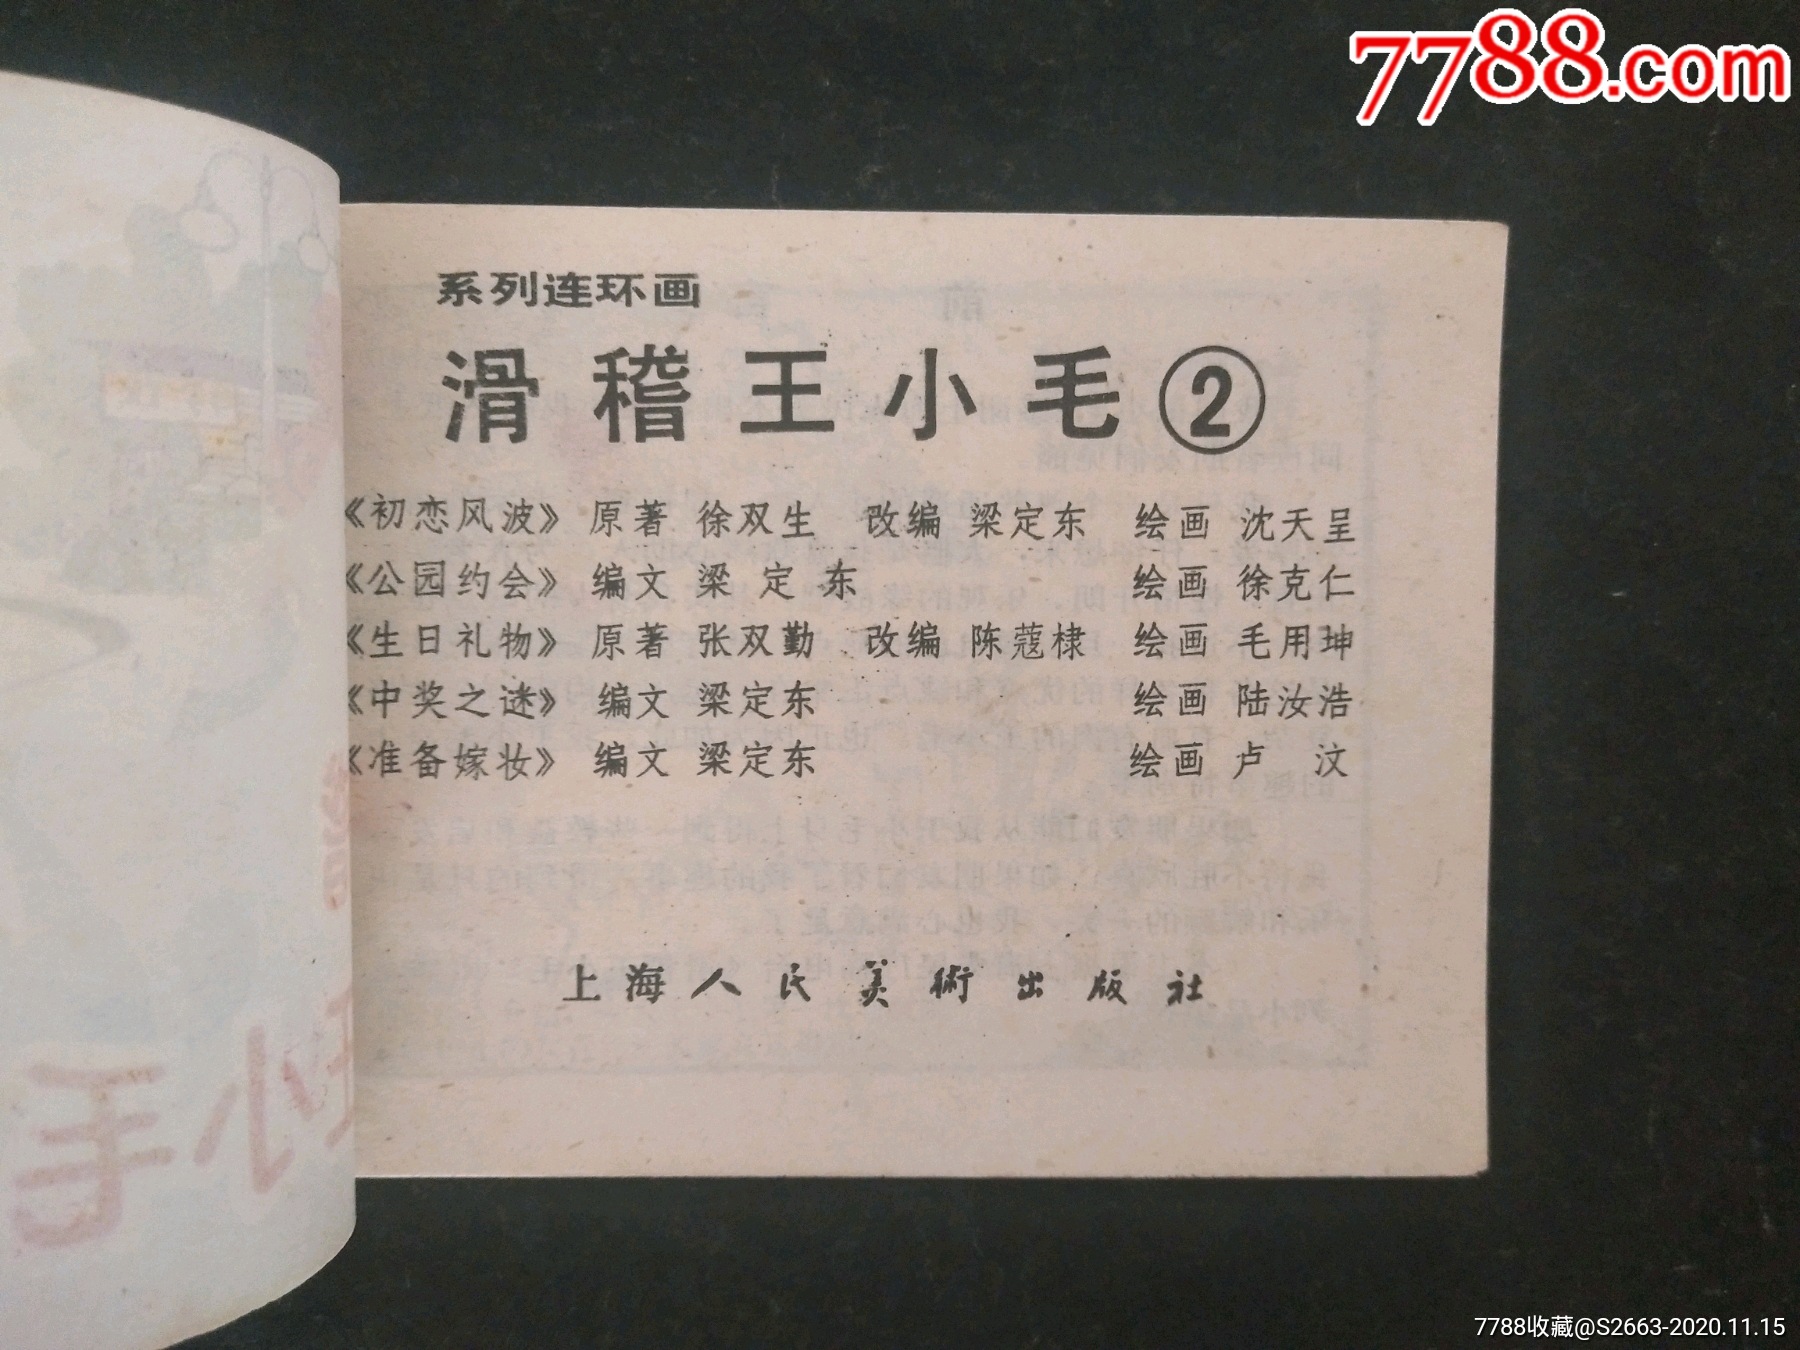 7788.com
系列连环画
滑稽王小毛②
《初恋风波》 原著 徐双生 改编 梁定东 绘画 沈天呈
《公园约会》 编文 梁定东 绘画 徐克仁
《生日礼物》 原著 张双勤 改编 陈蔻棣 绘画 毛用坤
《中奖之谜》 编文 梁定东 绘画 陆汝浩
《准备嫁妆》 编文 梁定东 绘画 卢汶
上海人民美術出版社
小毛
7788收藏@S2663-2020.11.15